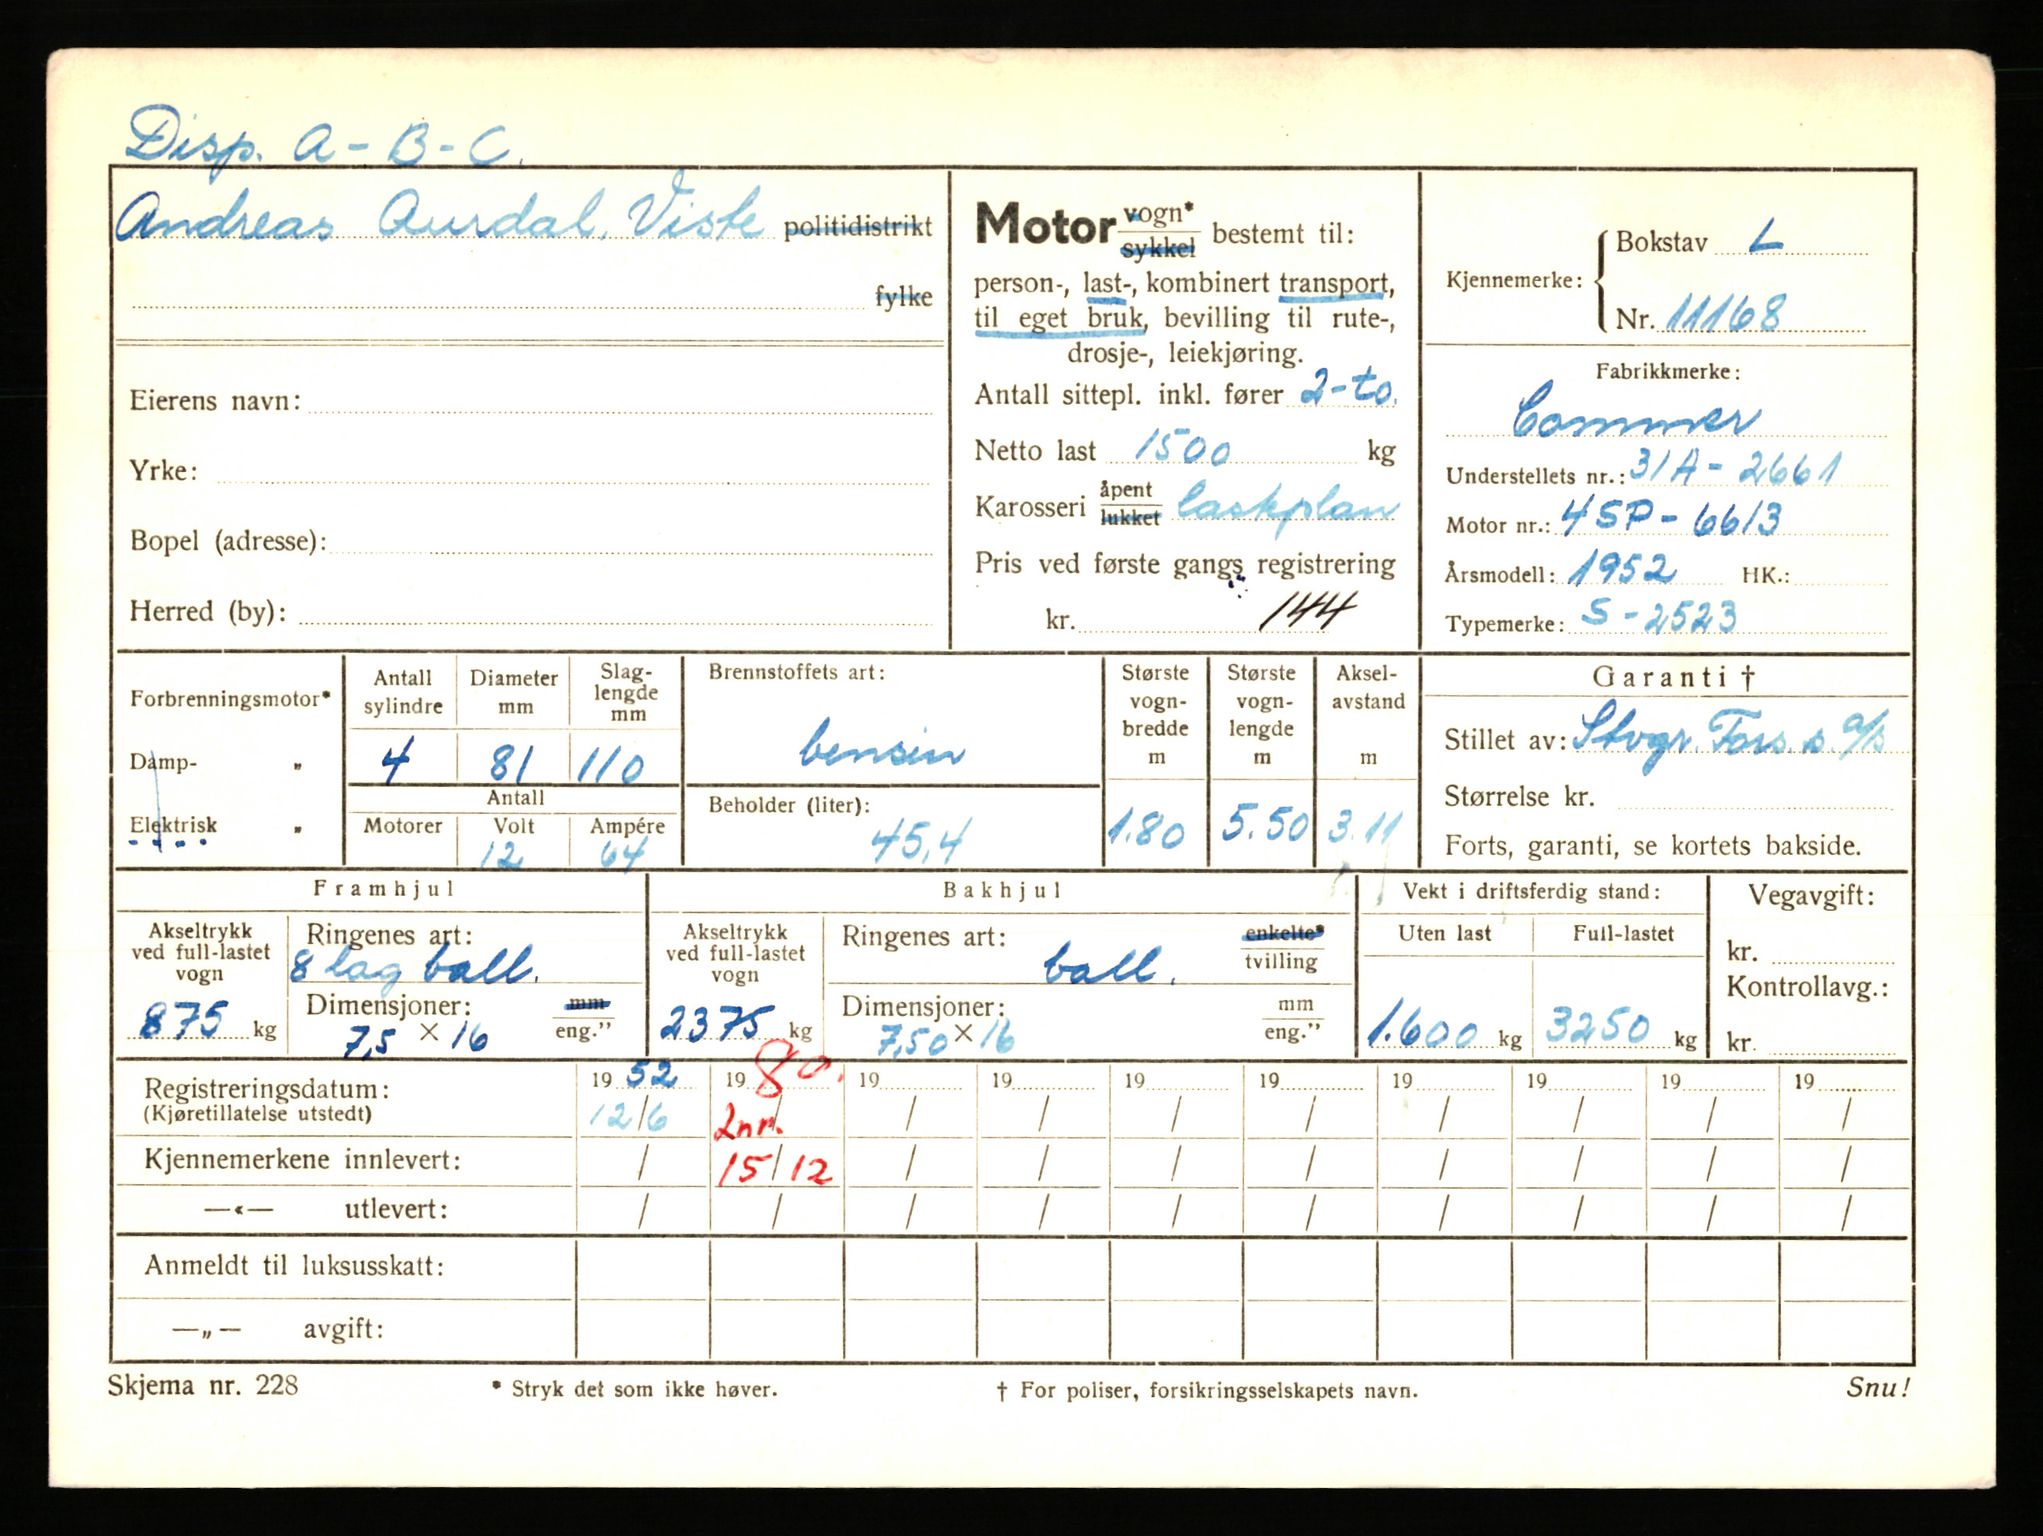 Disp. A - B - C.
Andreas Aurdal, Viste politidistrikt
fylke
Eierens navn:
Yrke:
Bopel (adresse):
Herred (by):
Motor vogn* sykkel bestemt til:
person-, last-, kombinert transport,
til eget bruk, bevilling til rute-,
drosje-, leiekjøring.
Antall sittepl. inkl. fører 2-to.
Netto last 1500 kg
Karosseri åpent lukket lasteplan
Pris ved første gangs registrering
kr. 144
Kjennemerke: Bokstav L
Nr. 11168
Fabrikkmerke:
Commer
Understellets nr.: 31A - 2661
Motor nr.: 45P - 6613
Årsmodell: 1952 HK.:
Typemerke: S - 2523
Forbrenningsmotor*
Damp- „
Elektrisk „
Antall sylindre 4
Diameter mm 81
Slag-lengde mm 110
Antall
Motorer
Volt 12
Ampére 64
Brennstoffets art:
bensin
Beholder (liter):
45,4
Største vogn-bredde m 1.80
Største vogn-lengde m 5.50
Aksel-avstand m 3.11
Garanti †
Stillet av: Stvgr. Fors.s. a/s
Størrelse kr.
Forts, garanti, se kortets bakside.
Framhjul
Akseltrykk ved full-lastet vogn 875 kg
Ringenes art:
8 lag ball.
Dimensjoner: mm
7,5 × 16 eng.”
Bakhjul
Akseltrykk ved full-lastet vogn 2375 kg
Ringenes art: enkelte*
ball. tvilling
Dimensjoner: mm
7,50 × 16 eng.”
Vekt i driftsferdig stand:
Uten last 1.600 kg
Full-lastet 3250 kg
Vegavgift:
kr.
Kontrollavg.:
kr.
Registreringsdatum: 19 52 19 19 19 19 19 19 19 19 19
(Kjøretillatelse utstedt) 12/6 2nr. / / / / / / / /
Kjennemerkene innlevert: / 15/12 / / / / / / / /
—«— utlevert: / / / / / / / / / /
Anmeldt til luksusskatt:
—„— avgift:
Skjema nr. 228 * Stryk det som ikke høver. † For poliser, forsikringsselskapets navn. Snu!